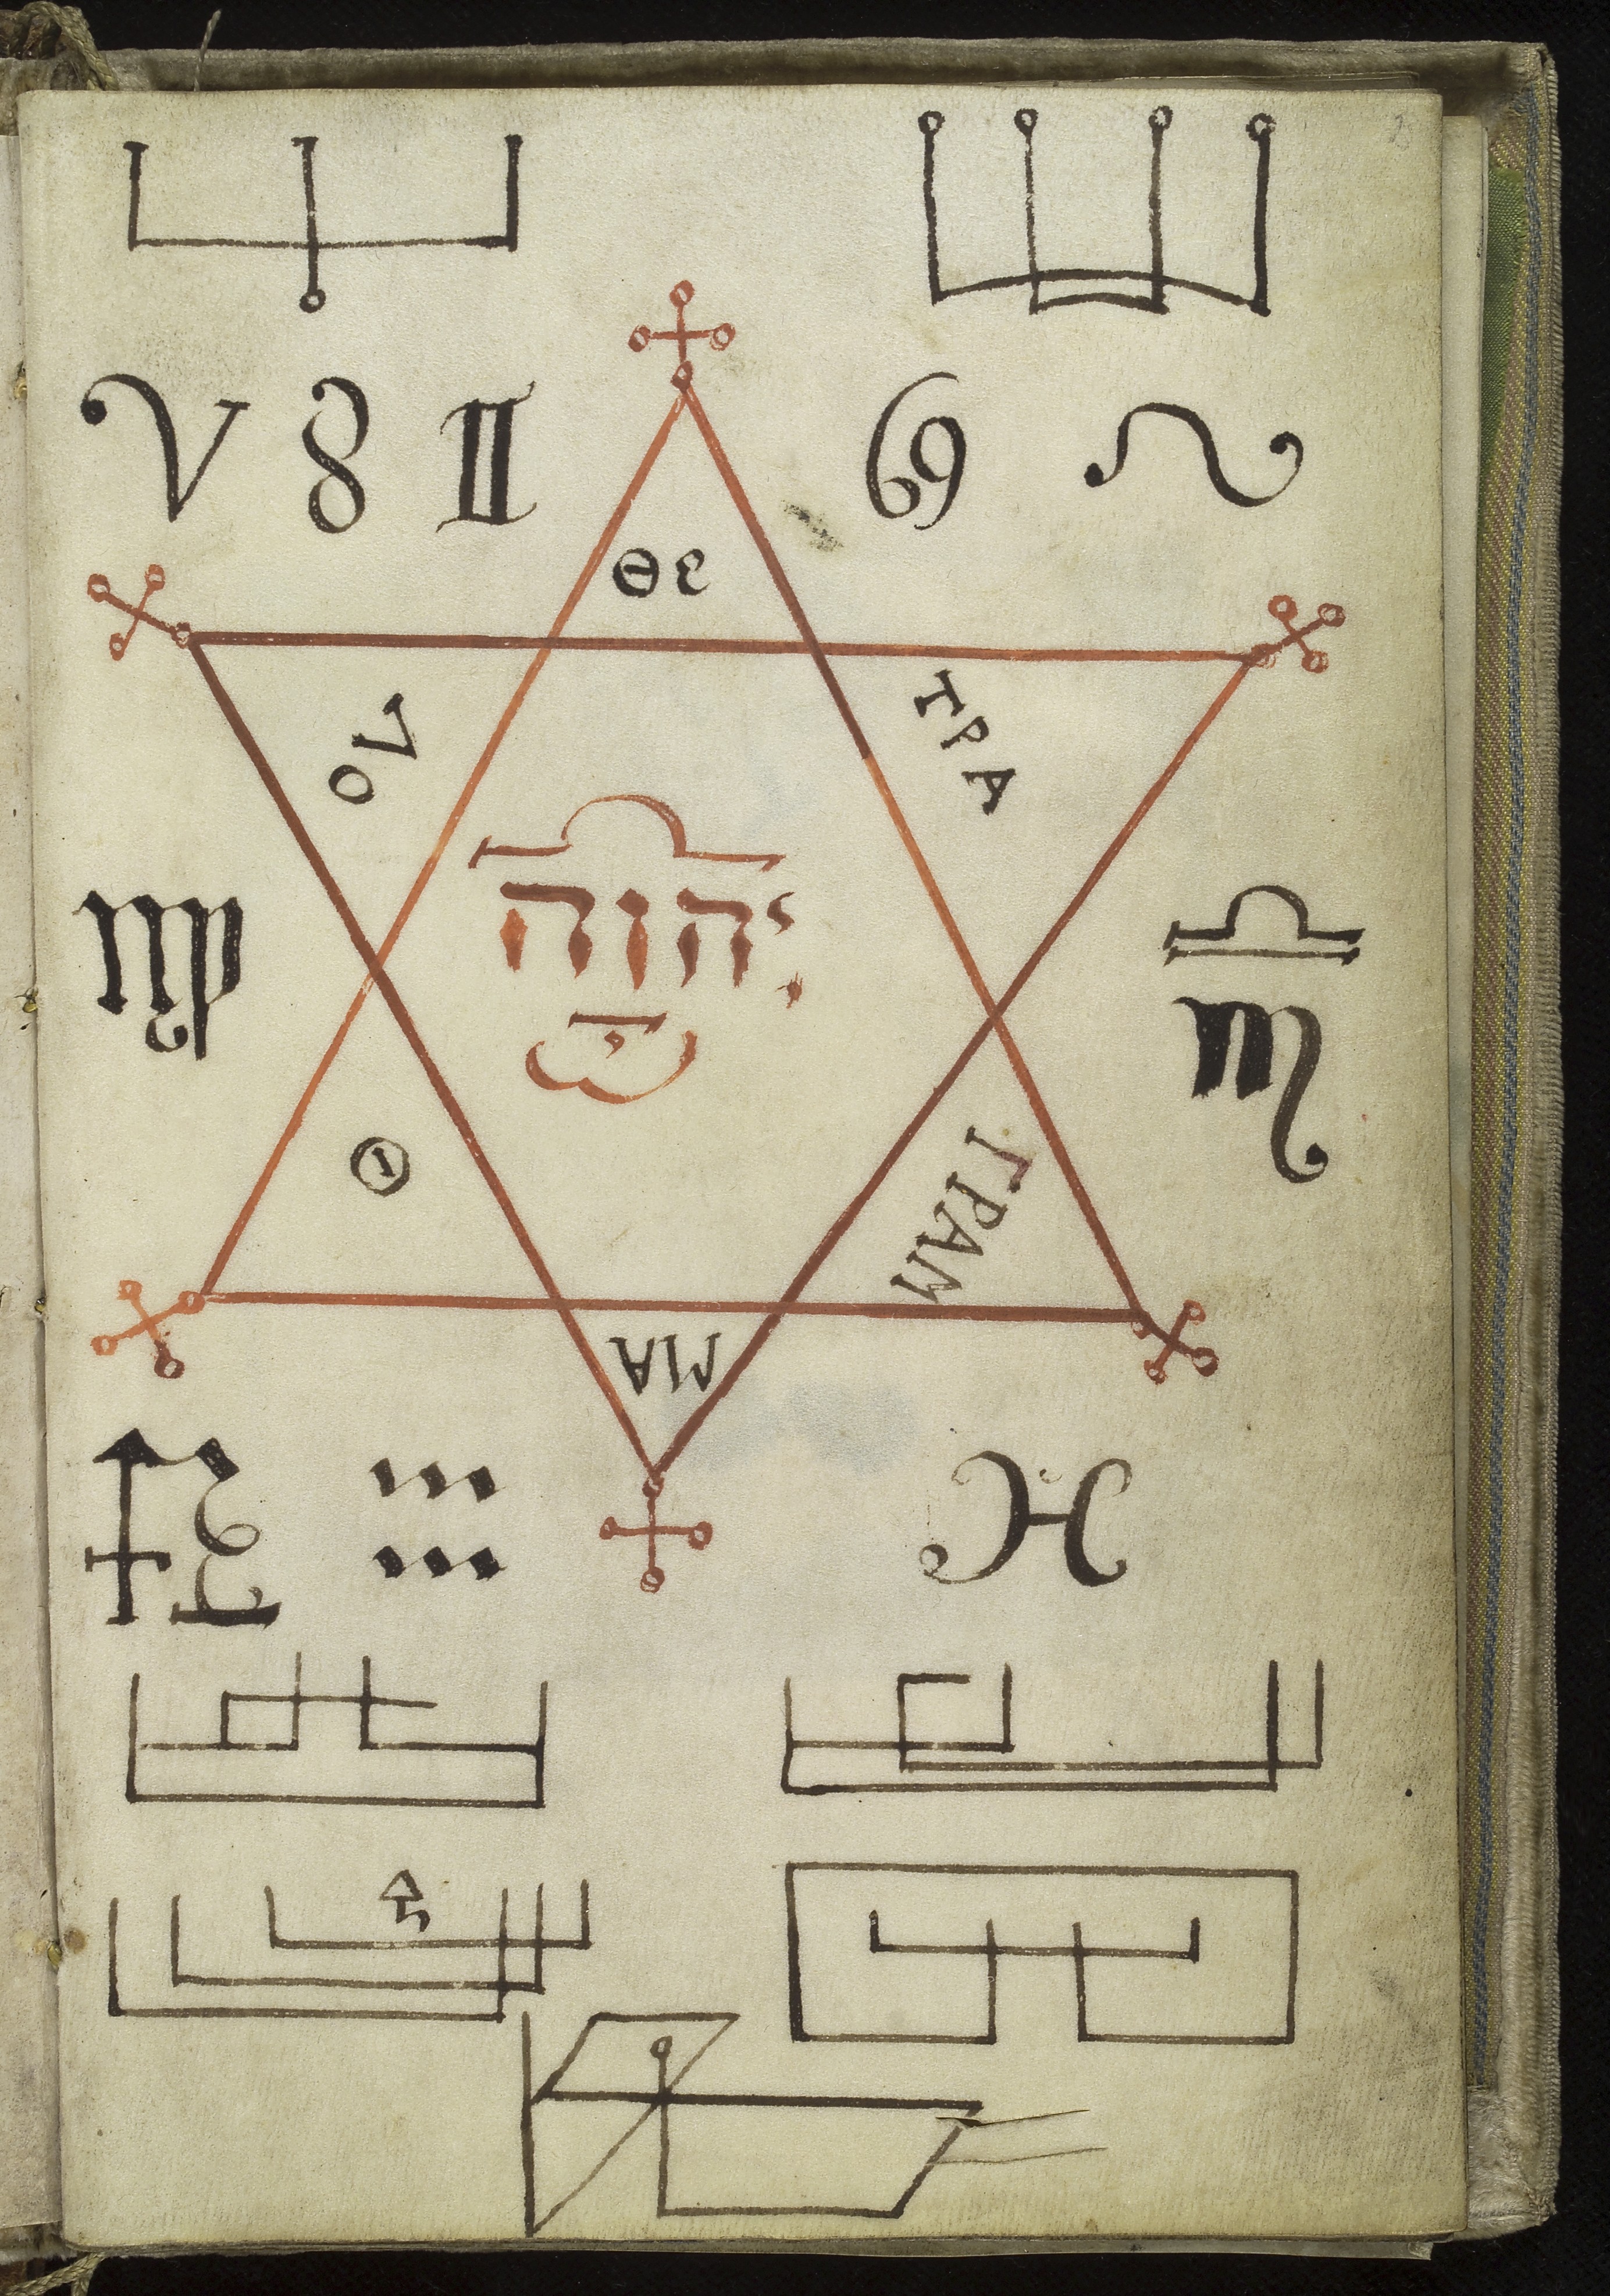 ♈ ♉ ♊ ♋ ♌
Θε
ΤΡΑ
ΓΡΑΜ
ΜΑ
Θ
ΛΟ
יהוה
♍ ♎
♏
♐ ♑ ♒ ♓